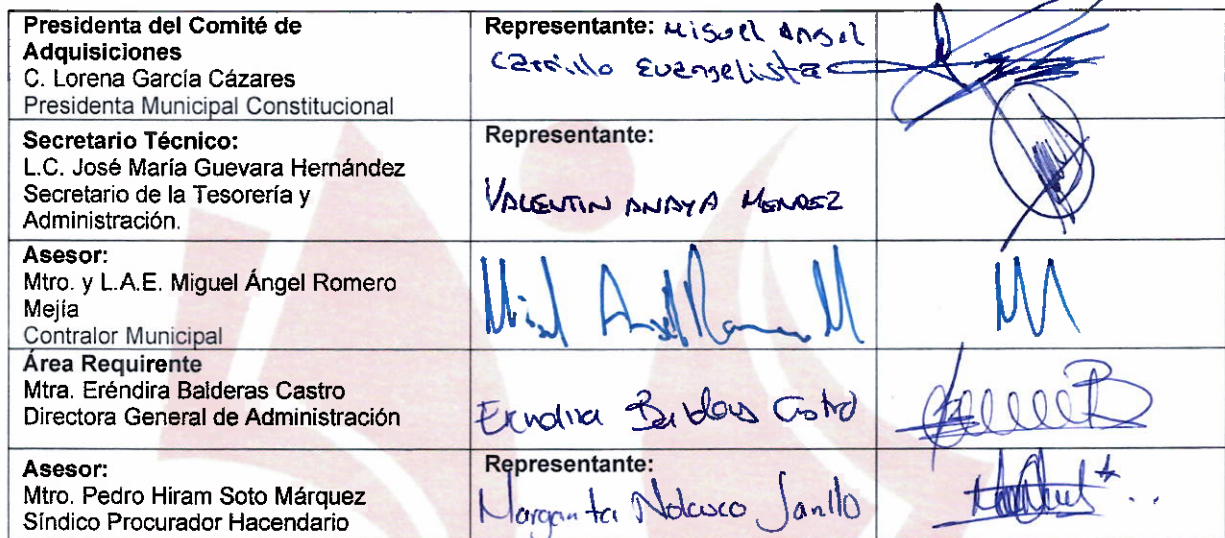 Presidenta del Comité de
Adquisiciones
C. Lorena García Cázares
Presidenta Municipal Constitucional
Representante: Miguel Angel
Carrillo Evangelista
Secretario Técnico:
L.C. José María Guevara Hernández
Secretario de la Tesorería y
Administración.
Representante:
VALENTIN ANAYA MENDEZ
Asesor:
Mtro. y L.A.E. Miguel Ángel Romero
Mejía
Contralor Municipal
Miguel Angel Romero M
Área Requirente
Mtra. Eréndira Balderas Castro
Directora General de Administración
Erendira Balderas Castro
Asesor:
Mtro. Pedro Hiram Soto Márquez
Síndico Procurador Hacendario
Representante:
Margarita Nolasco